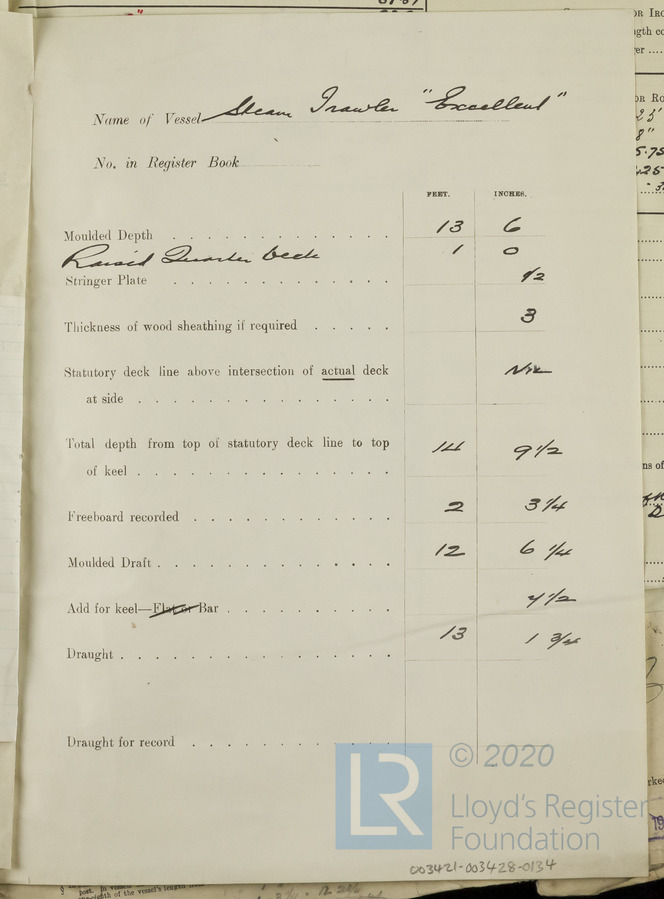 Name of Vessel Steam Trawler "Excellent"
No. in Register Book
FEET. INCHES.
Moulded Depth 13 6
Raised Quarter Deck 1 0
Stringer Plate 1/2
Thickness of wood sheathing if required 3
Statutory deck line above intersection of actual deck Nil
at side
Total depth from top of statutory deck line to top
of keel 14 9 1/2
Freeboard recorded 2 3 1/4
Moulded Draft 12 6 1/4
Add for keel—Flat or Bar 7 1/2
Draught 13 1 3/4
Draught for record
© 2020
LR
Lloyd's Register
Foundation
003421-003428-0134